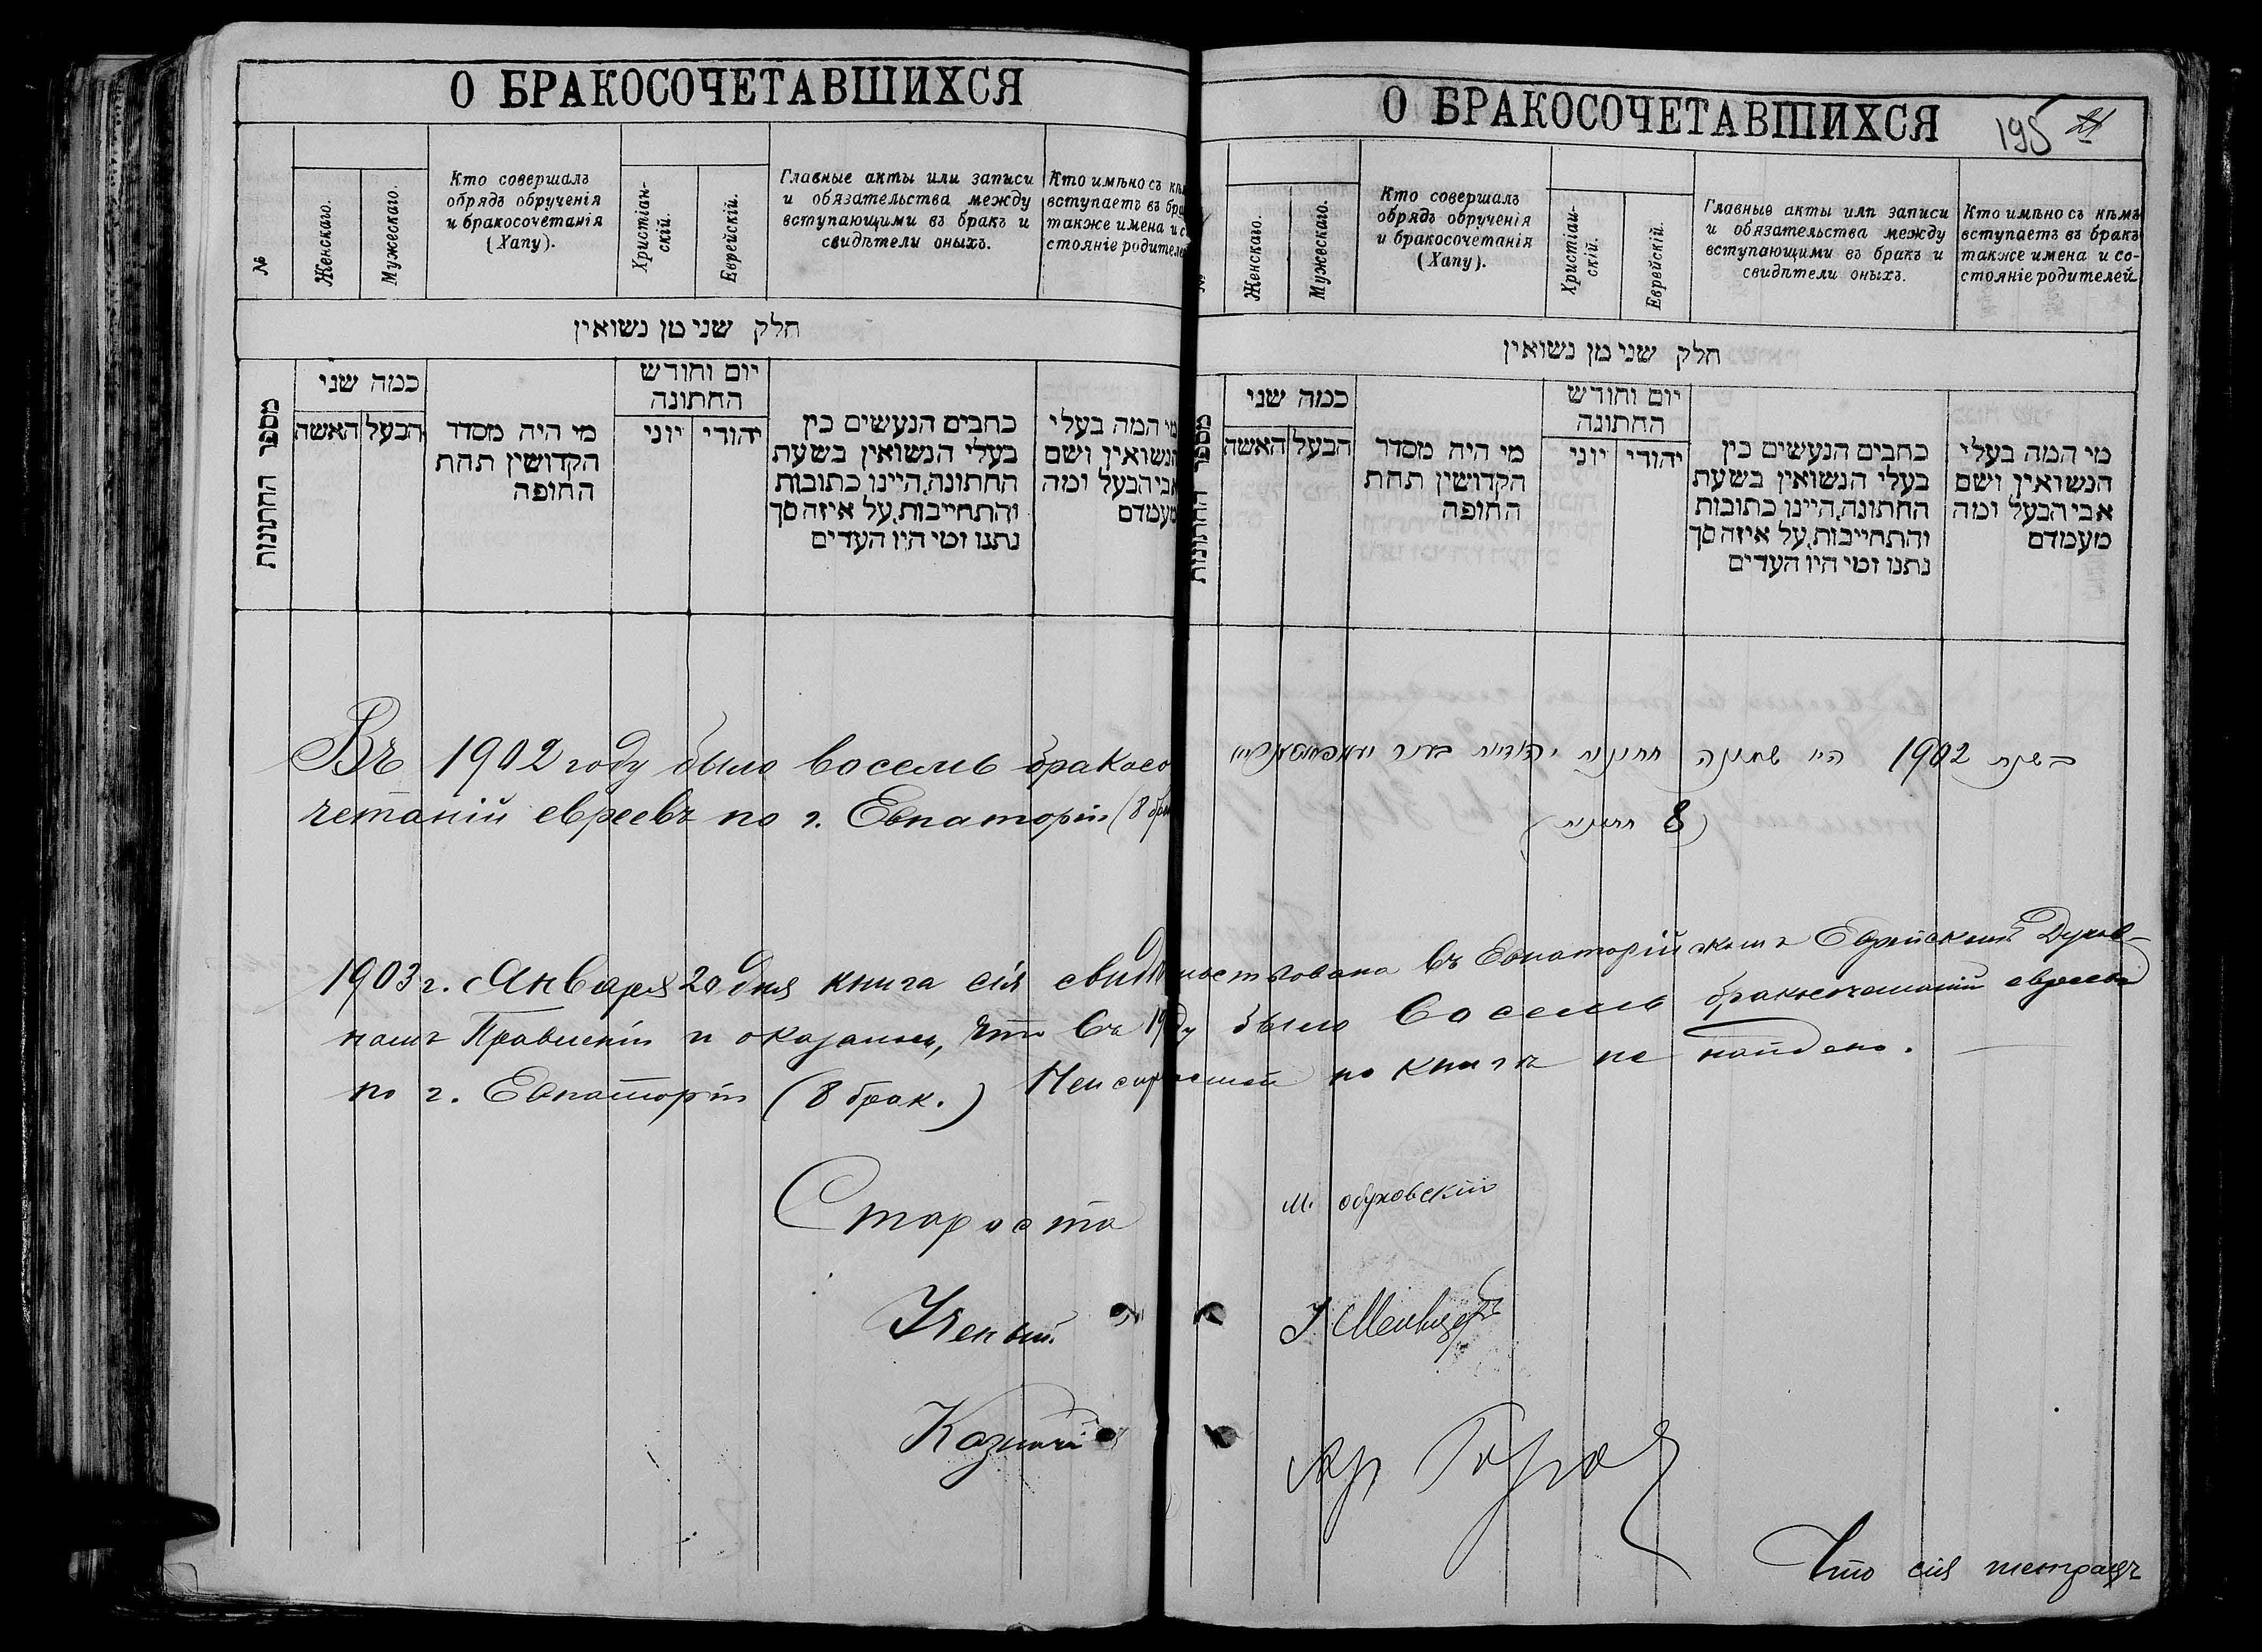 О БРАКОСОЧЕТАВШИХСЯ
№
Женскаго.
Мужескаго.
Кто совершалъ
обрядъ обрученія
и бракосочетанія
(Хапу).
Христіан-
скій.
Еврейскій.
Главные акты или записи
и обязательства между
вступающими въ бракъ и
свидѣтели оныхъ.
Кто имѣно съ
вступаетъ въ
также имена и
стояніе родителей
חלק שני מן נשואין
מספר החתונות
כמה שני
האשה
הבעל
מי היה מסדר
הקדושין תחת
החופה
יום וחודש
החתונה
יוני
יהודי
כתבים הנעשים בין
בעלי הנשואין בשעת
החתונה, היינו כתובות
והתחייבות, על איזה סך
נתנו ומי היו העדים
מי המה בעלי
הנשואין ושם
אבי הבעל ומה
מעמדם
Въ 1902 году было восемь бракосо
четаній евреевъ по г. Евпаторіи (8 брак
О БРАКОСОЧЕТАВШИХСЯ
195
21
№
Женскаго.
Мужескаго.
Кто совершалъ
обрядъ обрученія
и бракосочетанія
(Хапу).
Христіан-
скій.
Еврейскій.
Главные акты или записи
и обязательства между
вступающими въ бракъ и
свидѣтели оныхъ.
Кто имѣно съ кѣмъ
вступаетъ въ бракъ
также имена и со-
стояніе родителей
חלק שני מן נשואין
מספר החתונות
כמה שני
האשה
הבעל
מי היה מסדר
הקדושין תחת
החופה
יום וחודש
החתונה
יוני
יהודי
כתבים הנעשים בין
בעלי הנשואין בשעת
החתונה, היינו כתובות
והתחייבות, על איזה סך
נתנו ומי היו העדים
מי המה בעלי
הנשואין ושם
אבי הבעל ומה
מעמדם
בשנת 1902 היו שמונה חתונות יהודיות בעיר
(8 חתונות)
1903 г. Января 20 дня книга сія свидѣтельствована въ Евпаторійскомъ Еврейскомъ Духов-
номъ Правленіи и оказалось, что въ году было восемь бракосочетаній евреевъ
по г. Евпаторіи (8 брак.) Неисправностей по книгѣ не найдено.
Староста М. Обуховскій
Ученый
Казначей
Что сія тетрадь